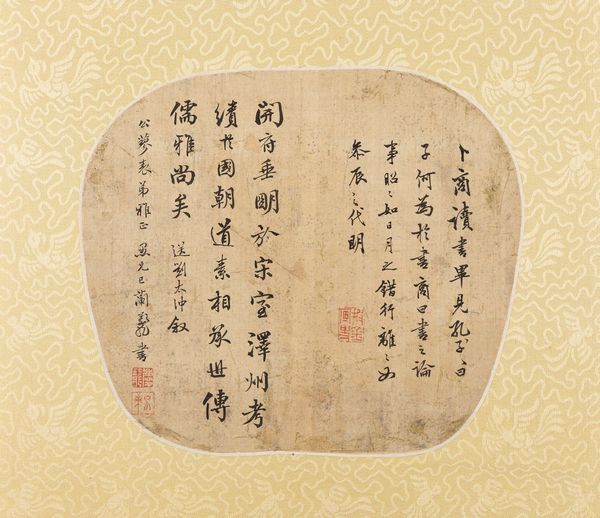 卜商讀書畢見孔子
子何為於書商曰書之論
事昭々如日月之錯行離々如
叅辰之代明
開府垂明於宋室澤州考
績於國朝道素相承世傳
儒雅尚矣 送劉太沖叙
公蓼表弟雅正 愚兄 書